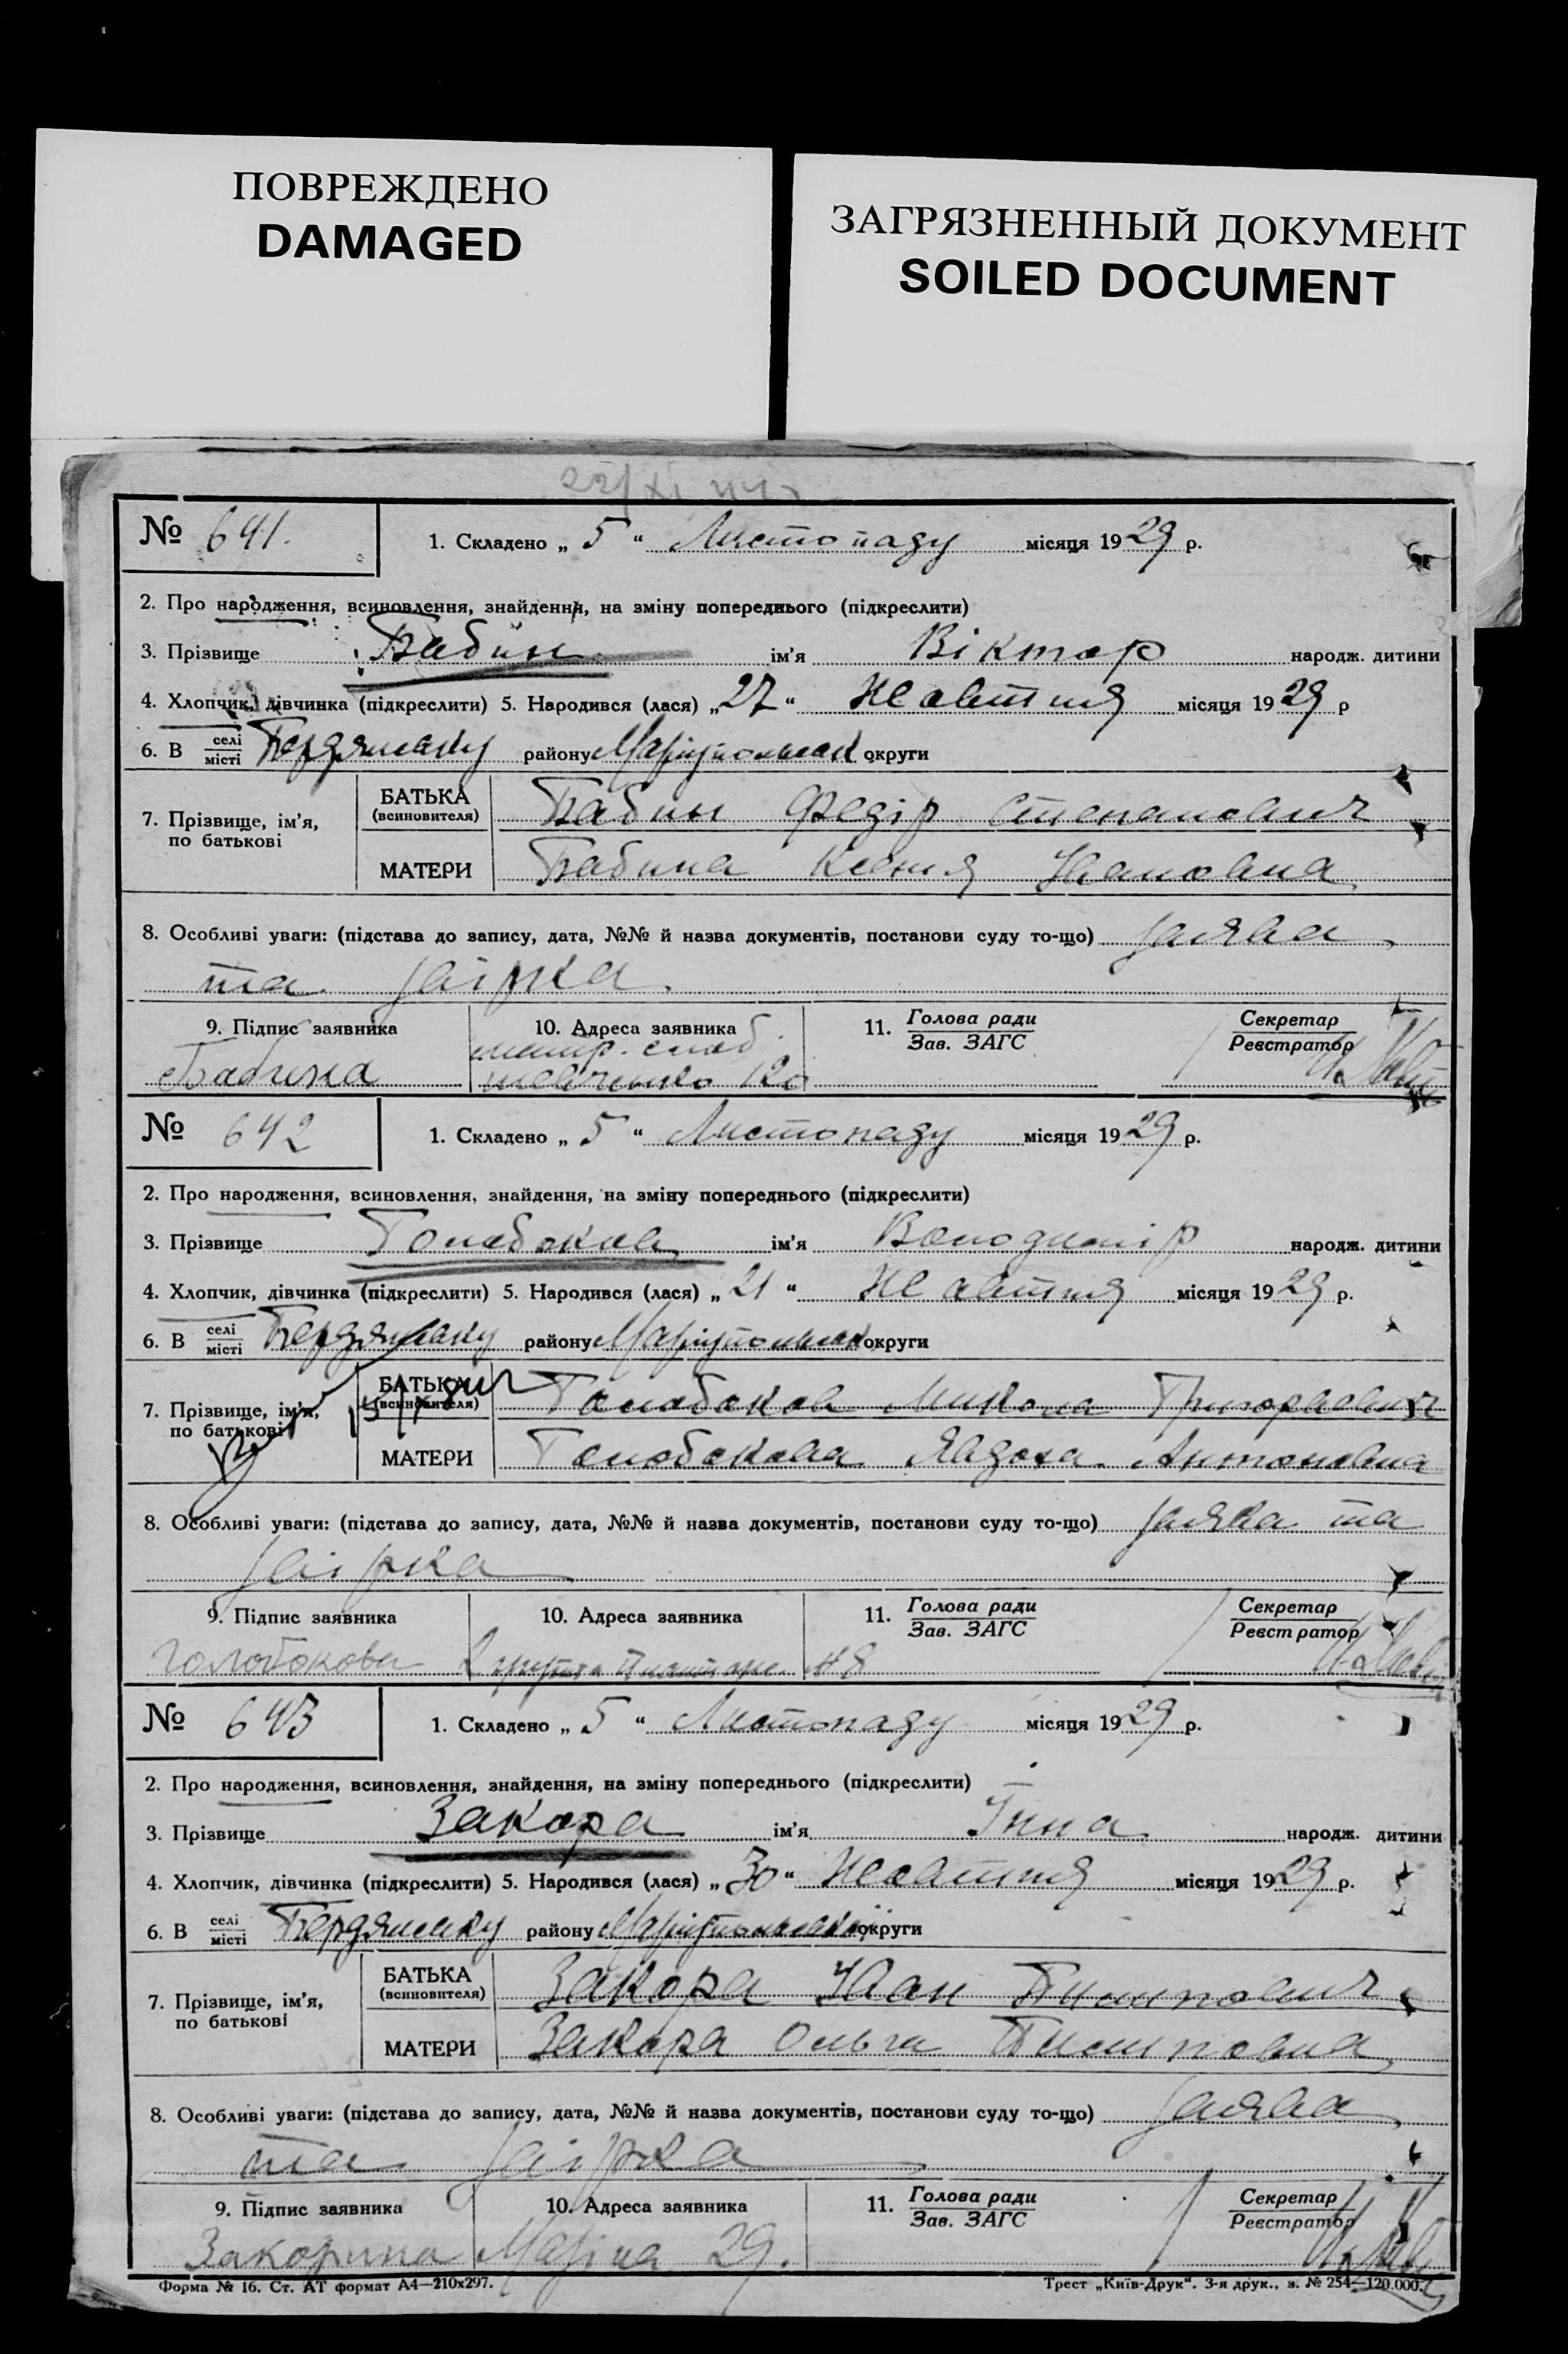 ПОВРЕЖДЕНО
DAMAGED
ЗАГРЯЗНЕННЫЙ ДОКУМЕНТ
SOILED DOCUMENT
№ 641.
1. Складено „ 5 “ Листопаду місяця 1929 р.
2. Про народження, всиновлення, знайдення, на зміну попереднього (підкреслити)
3. Прізвище Бабин ім'я Віктор народж. дитини
4. Хлопчик, дівчинка (підкреслити) 5. Народився (лася) „27“ Жовтня місяця 1929 р
6. В селі/місті Бердянську району Маріупольськ округи
7. Прізвище, ім'я, по батькові
БАТЬКА (всиновителя) Бабин Федір Степанович
МАТЕРИ Бабина Ксенія Ивановна
8. Особливі уваги: (підстава до запису, дата, №№ й назва документів, постанови суду то-що) заява
та
9. Підпис заявника
10. Адреса заявника
11. Голова ради
Зав. ЗАГС
Секретар
Реєстратор
Бабина
Шевченко 120
№ 642
1. Складено „ 5 “ Листопаду місяця 1929 р.
2. Про народження, всиновлення, знайдення, на зміну попереднього (підкреслити)
3. Прізвище Голобоков ім'я Володимір народж. дитини
4. Хлопчик, дівчинка (підкреслити) 5. Народився (лася) „ 21 “ Жовтня місяця 1929 р.
6. В селі/місті Бердянську району Маріупольськ округи
7. Прізвище, ім'я, по батькові
БАТЬКА (всиновителя) Голобоков Микола Григорьович
МАТЕРИ Голобокова Явдоха Антоновна
8. Особливі уваги: (підстава до запису, дата, №№ й назва документів, постанови суду то-що) заява та
9. Підпис заявника
10. Адреса заявника
11. Голова ради
Зав. ЗАГС
Секретар
Реєстратор
Голобокова
№ 8
№ 643
1. Складено „ 5 “ Листопаду місяця 1929 р.
2. Про народження, всиновлення, знайдення, на зміну попереднього (підкреслити)
3. Прізвище Закора ім'я Інна народж. дитини
4. Хлопчик, дівчинка (підкреслити) 5. Народився (лася) „30“ Жовтня місяця 1929 р.
6. В селі/місті Бердянську району Маріупольської округи
7. Прізвище, ім'я, по батькові
БАТЬКА (всиновителя) Закора Иван Пилипович
МАТЕРИ Закора Ольга Пилиповна
8. Особливі уваги: (підстава до запису, дата, №№ й назва документів, постанови суду то-що) заява
та
9. Підпис заявника
10. Адреса заявника
11. Голова ради
Зав. ЗАГС
Секретар
Реєстратор
29.
Форма № 16. Ст. АТ формат А4—210х297.
Трест „Київ-Друк“. 3-я друк., з. № 254—120.000.